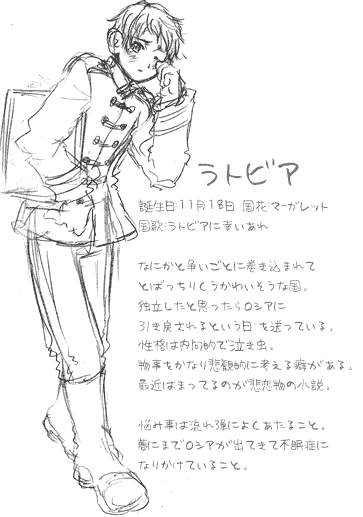 ラトビア
誕生日:11月18日 国花:マーガレット
国歌:ラトビアに幸いあれ
なにかと争いごとに巻き込まれて
とばっちりくうかわいそうな国。
独立したと思ったらロシアに
引き戻されるという日を送っている。
性格は内向的で泣き虫。
物事をかなり悲観的に考える癖がある。
最近はまってるのが悲恋物の小説。
悩み事は流れ弾によくあたること。
夢にまでロシアが出てきて不眠症に
なりかけていること。